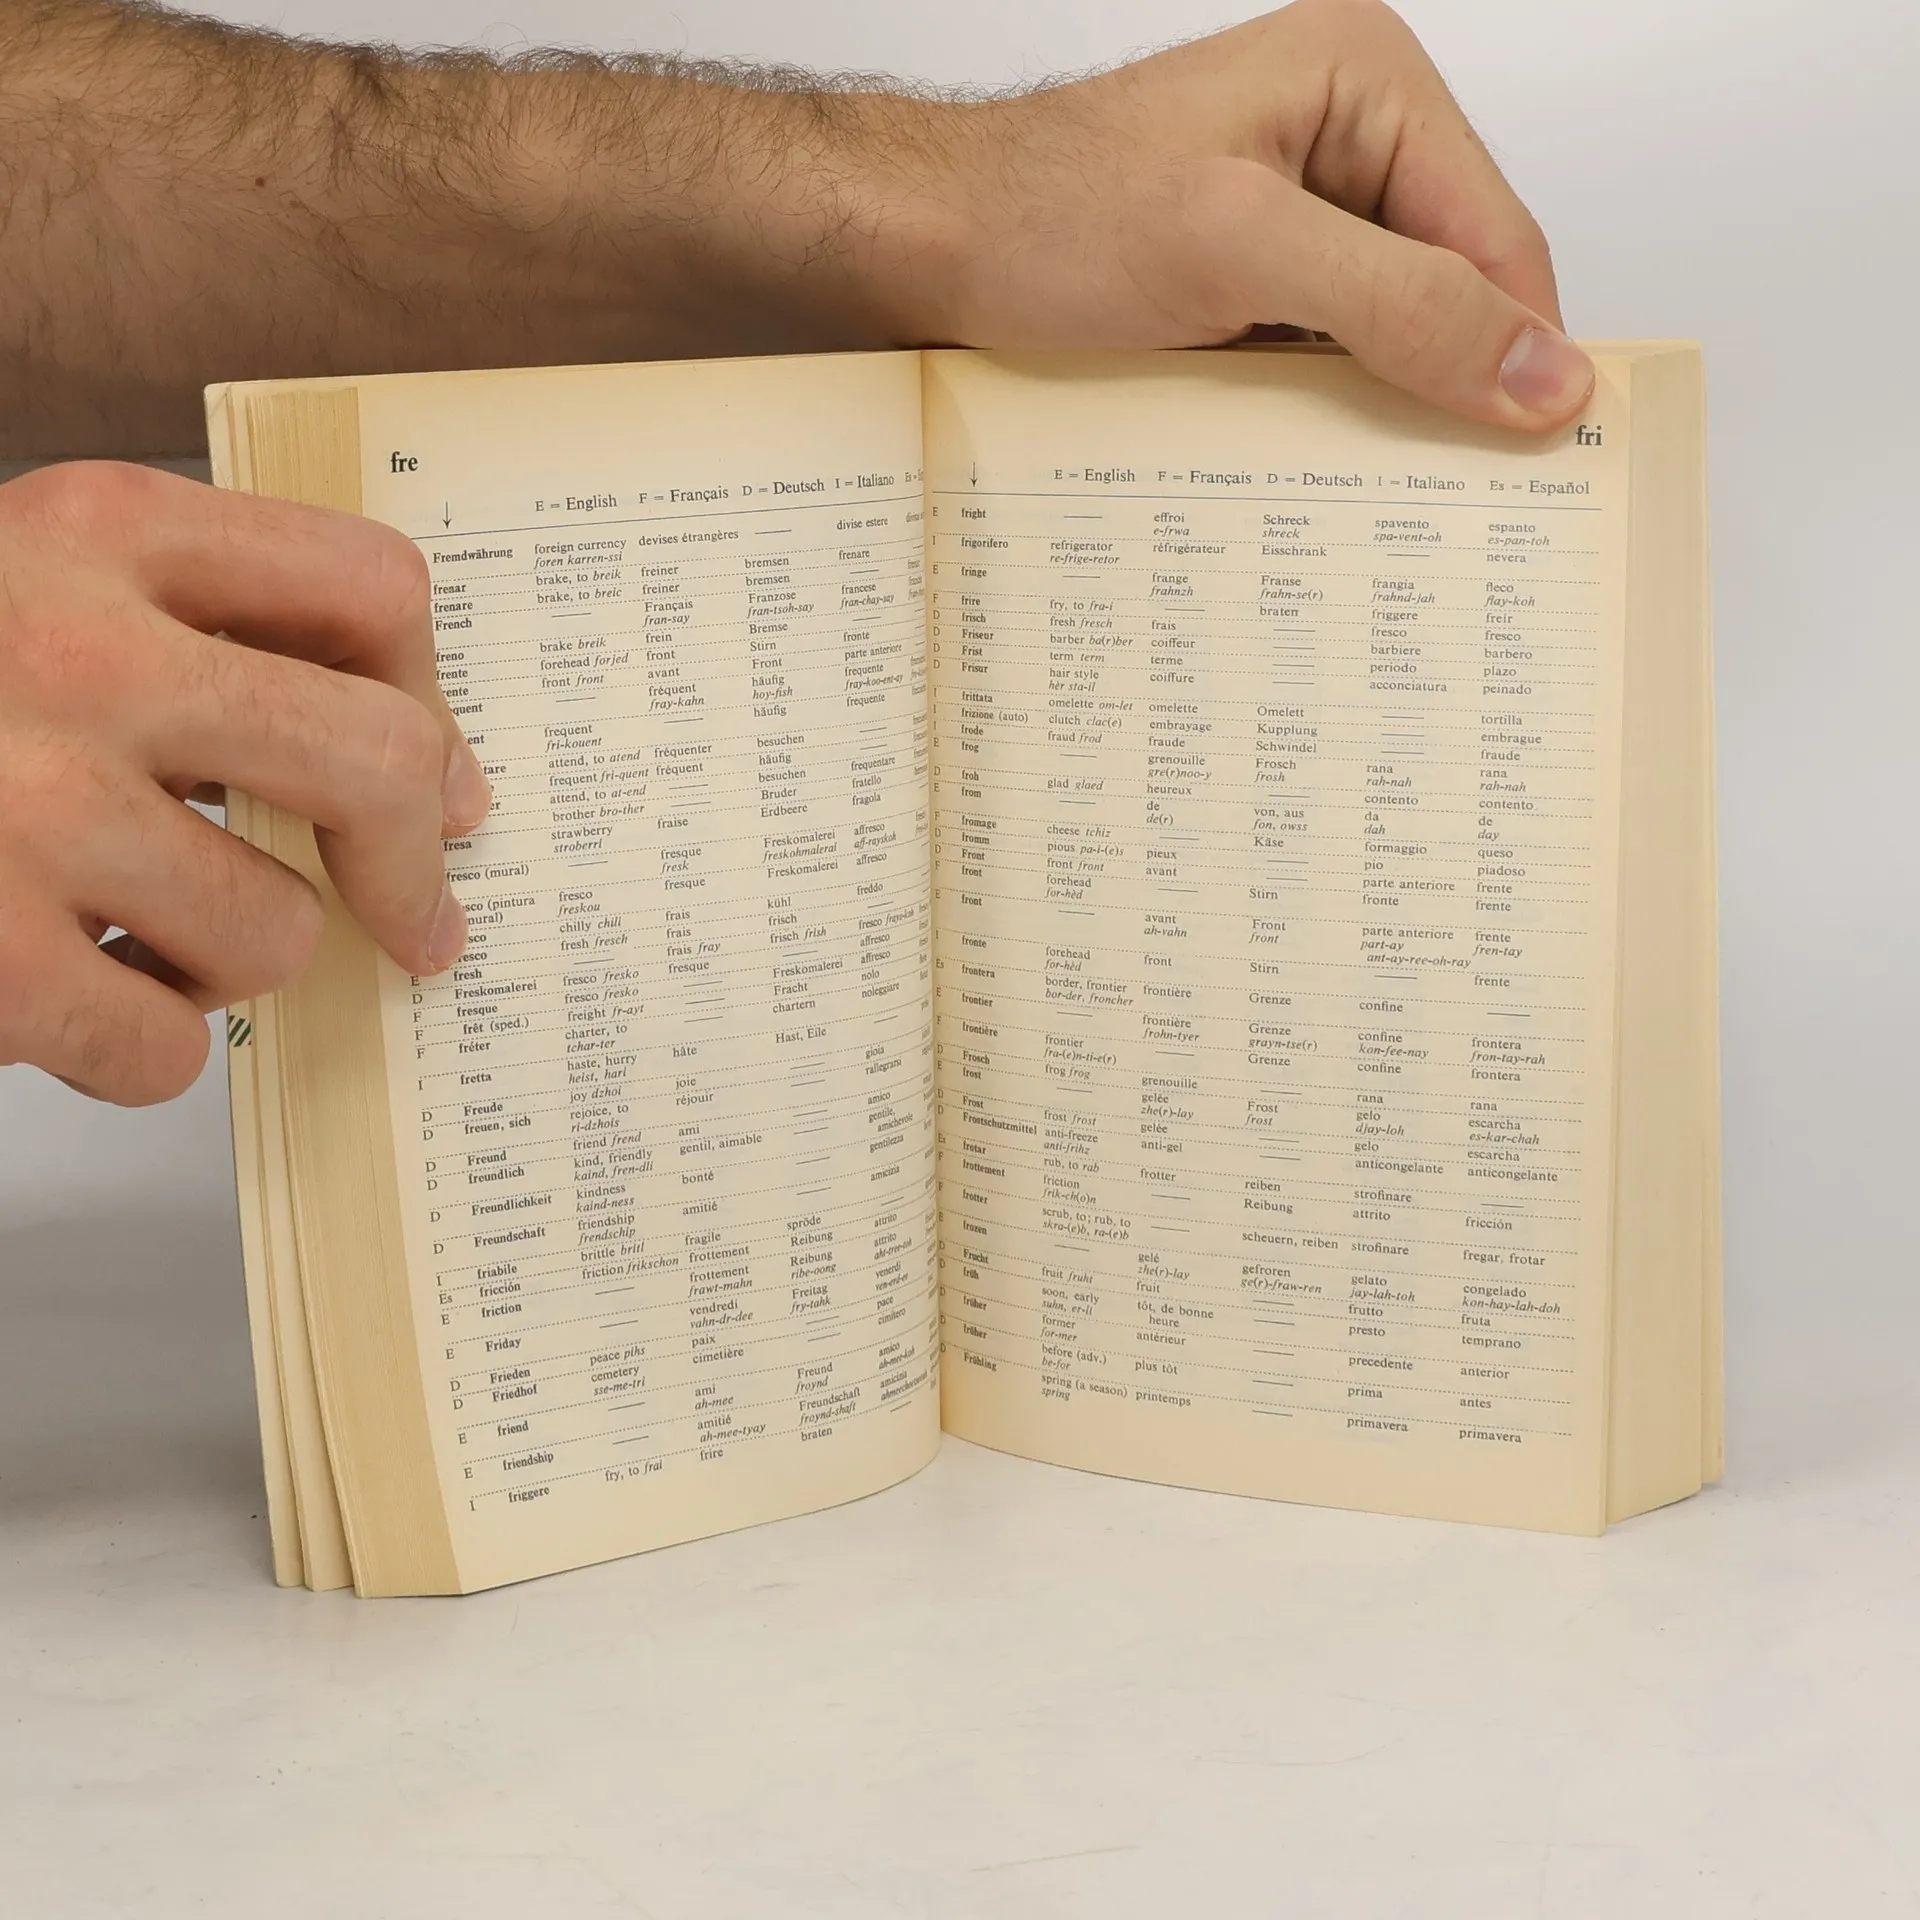 fre
E = English F = Français D = Deutsch I = Italiano Es =
Fremdwährung foreign currency devises étrangères —— divise estere
foren karren-ssi
frenar brake, to breik freiner bremsen frenare ——
frenare brake, to breic freiner bremsen ——
French —— Français Franzose francese
fran-say fran-tsoh-say fran-chay-say
freno brake breik frein Bremse
frente forehead forjed front Stirn fronte
front front avant Front parte anteriore
—— fréquent häufig frequente
fray-kahn hoy-fish fray-koo-ent-ay
frequent —— häufig frequente
fri-kouent
attend, to atend fréquenter besuchen ——
frequent fri-quent fréquent häufig ——
attend, to at-end —— besuchen frequentare
brother bro-ther —— Bruder fratello
fresa strawberry fraise Erdbeere fragola
stroberri
fresco (mural) —— fresque Freskomalerei affresco
fresk freskohmalerai aff-rayskoh
(pintura fresco fresque Freskomalerei affresco
mural) freskou
chilly chili frais kühl freddo
fresh fresch frais frisch ——
E fresh —— frais fray frisch frish fresco frays-koh
D Freskomalerei fresco fresko fresque —— affresco
F fresque fresco fresko —— Freskomalerei affresco
F frêt (sped.) freight fr-ayt —— Fracht nolo
F fréter charter, to —— chartern noleggiare
tchar-ter
I fretta haste, hurry hâte Hast, Eile ——
heist, hari
D Freude joy dzhoi joie —— gioia
D freuen, sich rejoice, to réjouir —— rallegrarsi
ri-dzhois
D Freund friend frend ami —— amico
D freundlich kind, friendly gentil, aimable —— gentile,
kaind, fren-dli amichevole
D Freundlichkeit kindness bonté —— gentilezza
kaind-ness
D Freundschaft friendship amitié —— amicizia
frendschip
I friabile brittle britl fragile spröde ——
Es fricción friction frikschon frottement Reibung attrito
E friction —— frottement Reibung attrito
frawt-mahn ribe-oong
E Friday —— vendredi Freitag venerdì
vahn-dr-dee fry-tahk
D Frieden peace pihs paix —— pace
D Friedhof cemetery cimetière —— cimitero
sse-me-tri
E friend —— ami Freund amico
ah-mee froynd ah-mee-koh
E friendship —— amitié Freundschaft amicizia
ah-mee-tyay froynd-shaft
I friggere fry, to frai frire braten ——
fri
E = English F = Français D = Deutsch I = Italiano Es = Español
E fright —— effroi Schreck spavento espanto
e-frwa shreck spa-vent-oh es-pan-toh
I frigorifero refrigerator réfrigérateur Eisschrank —— nevera
re-frige-retor
E fringe —— frange Franse frangia fleco
frahnzh frahn-se(r) frahnd-jah flay-koh
F frire fry, to fra-i —— braten friggere freír
D frisch fresh fresch frais —— fresco fresco
D Friseur barber ba(r)ber coiffeur —— barbiere barbero
D Frist term term terme —— periodo plazo
D Frisur hair style coiffure —— acconciatura peinado
hèr sta-il
I frittata omelette om-let omelette Omelett —— tortilla
I frizione (auto) clutch clac(e) embrayage Kupplung —— embrague
I frode fraud frod fraude Schwindel —— fraude
E frog —— grenouille Frosch rana rana
gre(r)noo-y frosh rah-nah rah-nah
D froh glad glaed heureux —— contento contento
E from —— de von, aus da de
de(r) fon, owss dah day
F fromage cheese tchiz —— Käse formaggio queso
D fromm pious pa-i-(e)s pieux —— pio piadoso
D Front front front avant —— parte anteriore frente
F front forehead —— Stirn fronte frente
for-hèd
E front —— avant Front parte anteriore frente
ah-vahn front part-ay fren-tay
ant-ay-ree-oh-ray
I fronte forehead front Stirn —— frente
for-hèd
Es frontera border, frontier frontière Grenze confine ——
bor-der, froncher
E frontier —— frontière Grenze confine frontera
frohn-tyer grayn-tse(r) kon-fee-nay fron-tay-rah
F frontière frontier —— Grenze confine frontera
fra-(e)n-ti-e(r)
D Frosch frog frog grenouille —— rana rana
E frost —— gelée Frost gelo escarcha
zhe(r)-lay frost djay-loh es-kar-chah
D Frost frost frost gelée —— gelo escarcha
D Frostschutzmittel anti-freeze anti-gel —— anticongelante anticongelante
anti-frihz
Es frotar rub, to rab frotter reiben strofinare ——
F frottement friction —— Reibung attrito fricción
frik-ch(o)n
F frotter scrub, to; rub, to —— scheuern, reiben strofinare fregar, frotar
skra-(e)b, ra-(e)b
E frozen —— gelé gefroren gelato congelado
zhe(r)-lay ge(r)-fraw-ren jay-lah-toh kon-hay-lah-doh
D Frucht fruit fruht fruit —— frutto fruta
D früh soon, early tôt, de bonne —— presto temprano
suhn, er-li heure
D früher former antérieur —— precedente anterior
for-mer
D früher before (adv.) plus tôt —— prima antes
be-for
D Frühling spring (a season) printemps —— primavera primavera
spring